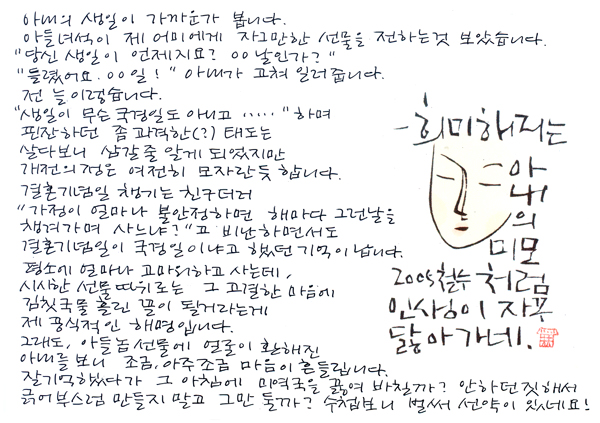 아내의 생일이 가까운가 봅니다.
아들녀석이 제 어미에게 자그만한 선물을 전하는것 보았습니다.
"당신 생일이 언제지요? 00날인가?"
"틀렸어요. 00일!" 아내가 고쳐 일러줍니다.
전 늘 이렇습니다.
"생일이 무슨 국경일도 아니고 ....." 하며
핀잔하던 좀 과격한(?) 태도는
살다보니 삼갈 줄 알게 되었지만
개전의 정은 여전히 모자란듯 합니다.
결혼기념일 챙기는 친구더러
"가정이 얼마나 불안정하면 해마다 그런날을
챙겨가며 사느냐?"고 비난하면서도
결혼기념일이 국경일이냐고 했던 기억이 납니다.
평소에 얼마나 고마워하고 사는데,
시시한 선물 따위로는 그 고결한 마음에
김칫국물 흘린 꼴이 될거라는게
제 공식적인 해명입니다.
그래도, 아들놈 선물에 얼굴이 환해진
아내를 보니 조금, 아주 조금 마음이 흔들립니다.
잘 기억했다가 그 아침에 미역국을 끓여 바칠까? 안하던 짓 해서
긁어부스럼 만들지 말고 그만 둘까? 수첩보니 벌써 선약이 있네요!
-희미해지는
아내의
미모
처럼
인상이 자꾸
닮아가네.
2005 철수